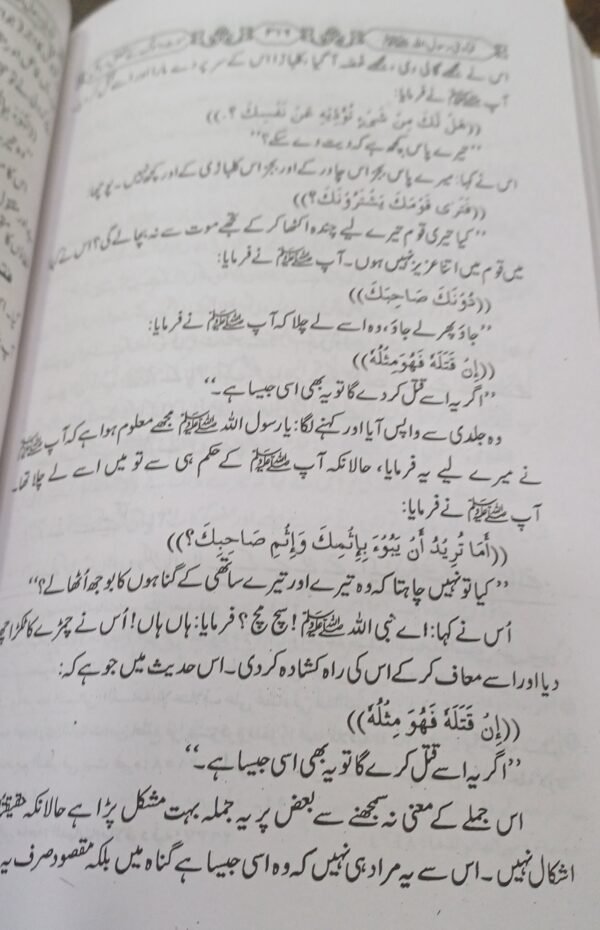 فتاویٰ رسول اللہ ﷺ ۳۱۲
اس نے مجھے گالی دی، مجھے غصہ آ گیا، کلہاڑا اس کے سر پر دے مارا اور اسے قتل کر دیا
آپ ﷺ نے فرمایا:
((هَلْ لَكَ مِنْ شَيْءٍ تُؤَدِّيْهِ عَنْ نَفْسِكَ؟.))
’’تیرے پاس کچھ ہے کہ دیت دے سکے؟‘‘
اس نے کہا: میرے پاس بجز اس چادر کے اور بجز اس کلہاڑی کے اور کچھ نہیں۔ پوچھا:
((فَتَرَى قَوْمَكَ يَشْتَرُوْنَكَ؟))
’’کیا تیری قوم تیرے لیے چندہ اکٹھا کر کے تجھے موت سے نہ بچا لے گی؟ اس نے کہا
میں قوم میں اتنا عزیز نہیں ہوں۔ آپ ﷺ نے فرمایا:
((دُوْنَكَ صَاحِبَكَ))
’’جاؤ پھر لے جاؤ، وہ اسے لے چلا کہ آپ ﷺ نے فرمایا:
((إِنْ قَتَلَهٗ فَهُوَ مِثْلُهٗ))
’’اگر یہ اسے قتل کر دے گا تو یہ بھی اسی جیسا ہے۔‘‘
وہ جلدی سے واپس آیا اور کہنے لگا: یا رسول اللہ ﷺ مجھے معلوم ہوا ہے کہ آپ ﷺ
نے میرے لیے یہ فرمایا، حالانکہ آپ ﷺ کے حکم ہی سے تو میں اسے لے چلا تھا۔
آپ ﷺ نے فرمایا:
((أَمَا تُرِيْدُ أَنْ يَبُوْءَ بِإِثْمِكَ وَإِثْمِ صَاحِبِكَ؟))
’’کیا تو نہیں چاہتا کہ وہ تیرے اور تیرے ساتھی کے گناہوں کا بوجھ اُٹھا لے؟‘‘
اُس نے کہا: اے نبی اللہ ﷺ! سچ مچ؟ فرمایا: ہاں ہاں! اُس نے چمڑے کا ٹکڑا
دیا اور اسے معاف کر کے اس کی راہ کشادہ کر دی۔ اس حدیث میں جو ہے کہ:
((إِنْ قَتَلَهٗ فَهُوَ مِثْلُهٗ))
’’اگر یہ اسے قتل کرے گا تو یہ بھی اسی جیسا ہے۔‘‘
اس جملے کے معنی نہ سمجھنے سے بعض پر یہ جملہ بہت مشکل پڑا ہے حالانکہ حقیقتاً
اشکال نہیں۔ اس سے یہ مراد ہی نہیں کہ وہ اسی جیسا ہے گناہ میں بلکہ مقصود صرف یہ